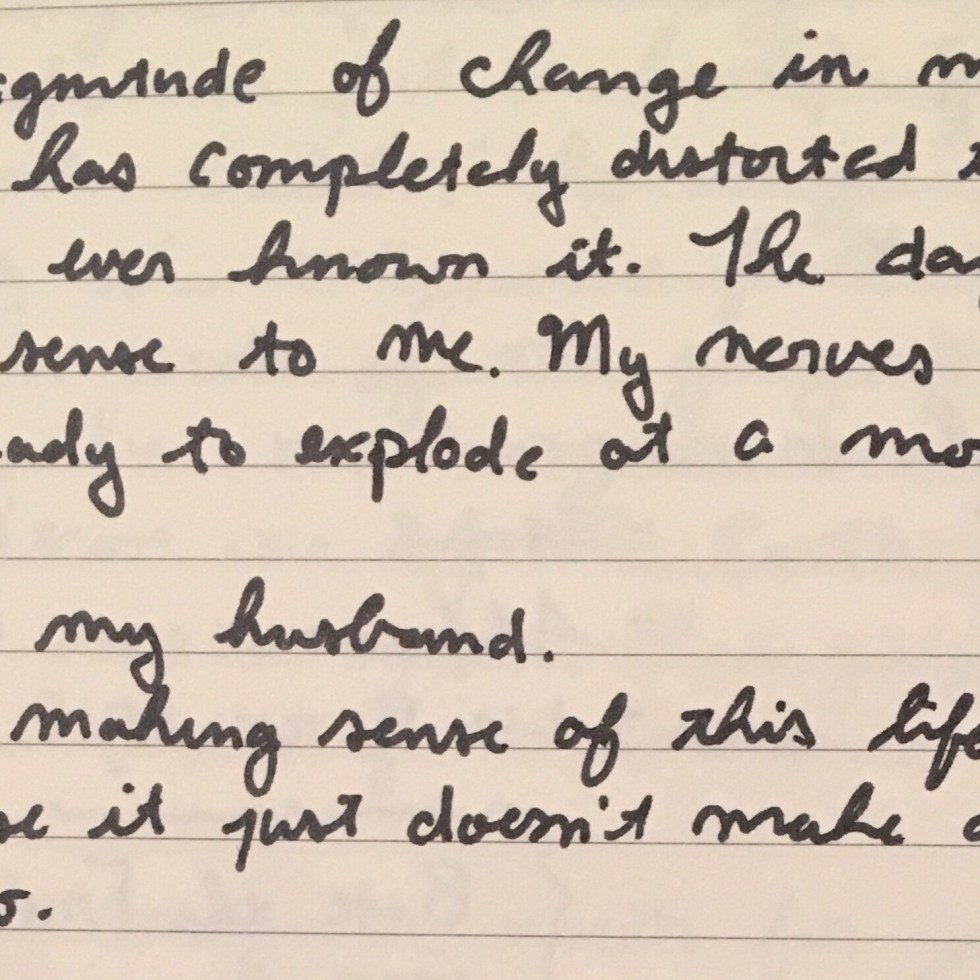 of change in
has completely distorted
ever known it. The
sense to me. My nerves
to explode at a
my husband.
making sense of this life
it just doesn't make